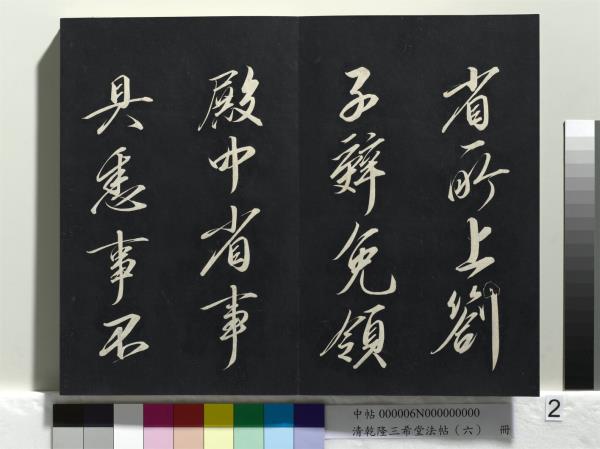 省所上劄
子辭免領
殿中省事
具悉事不
2
中帖 000006N000000000
清乾隆三希堂法帖（六） 冊